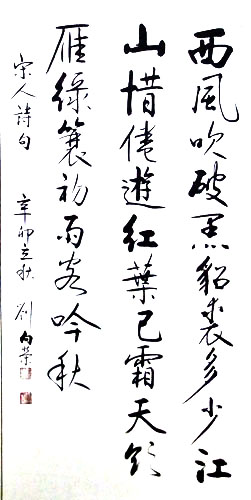 西風吹破黑貂裘多少江
山惜倦遊紅葉已霜天欲
雁綠蓑初雨客吟秋
宋人詩句 辛卯立秋 劉向榮